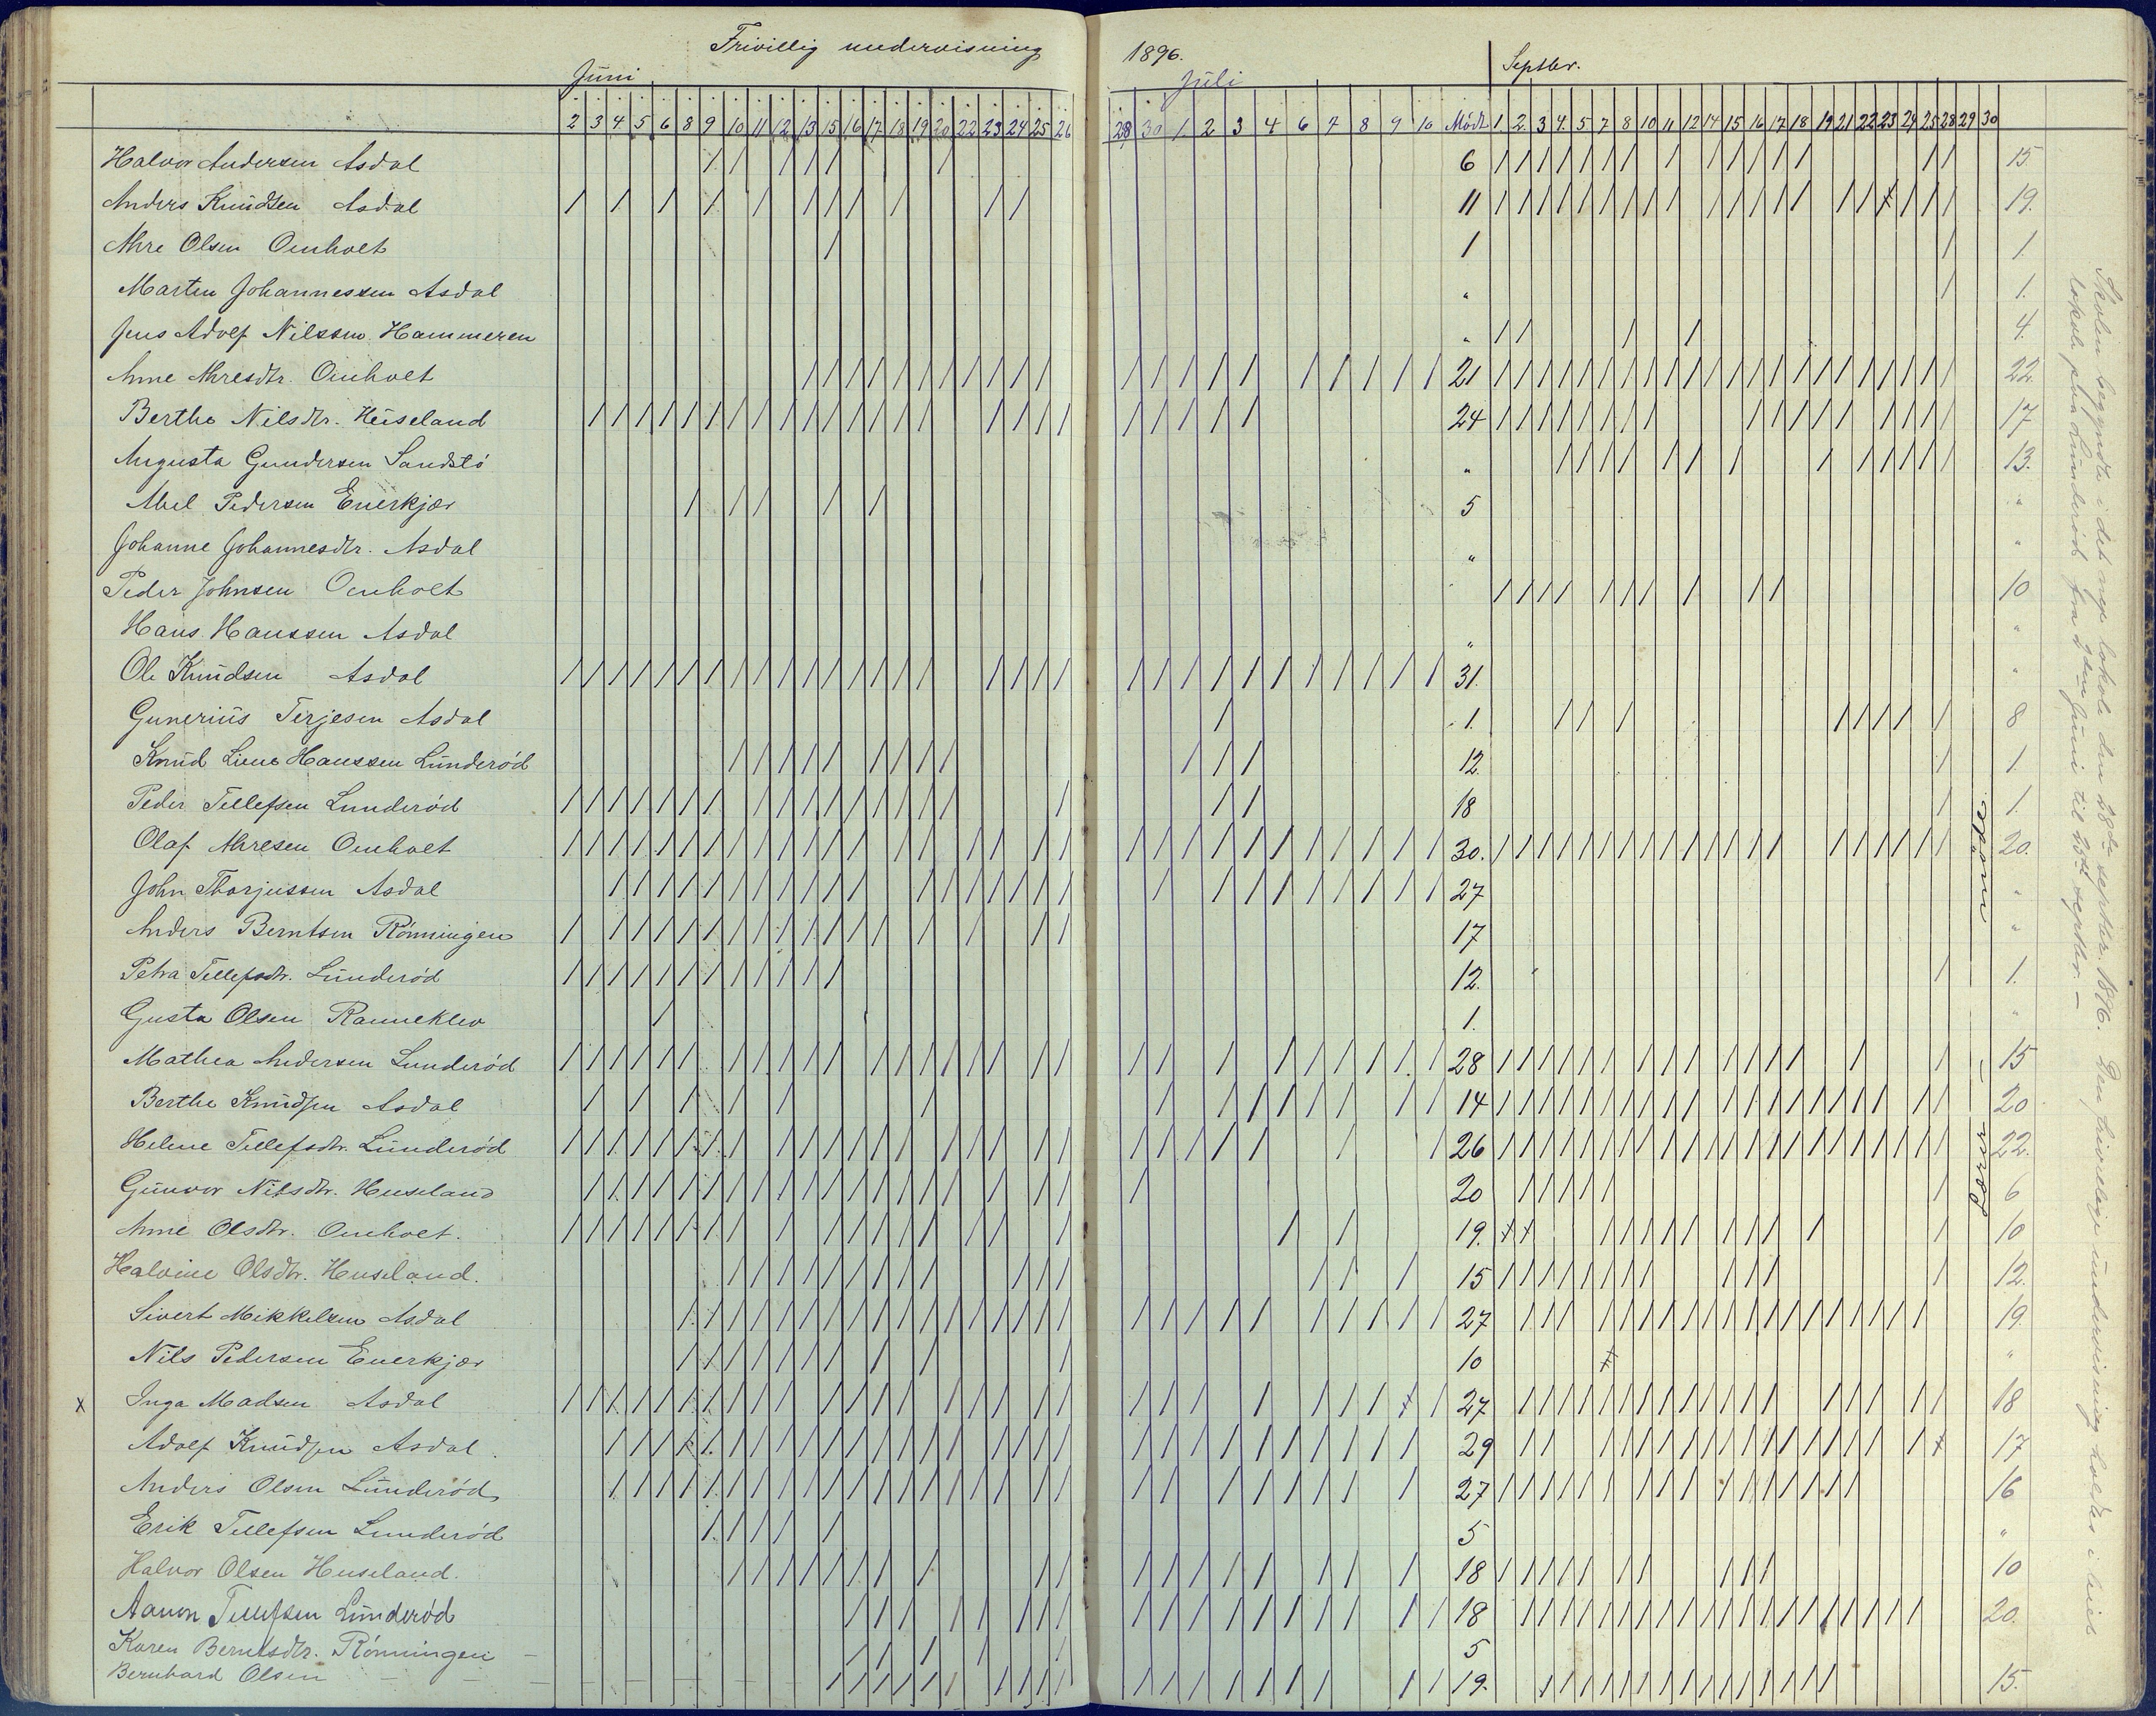 Frivillig undervisning 1896.
Juni Juli Septbr.
2 3 4 5 6 8 9 10 11 12 13 15 16 17 18 19 20 22 23 24 25 26 28 30 1 2 3 4 6 7 8 9 10 Mødt 1 2 3 4 5 7 8 10 11 12 14 15 16 17 18 19 21 22 23 24 25 28 29 30
Halvor Andersen Asdal 6 15
Anders Knudsen Asdal 11 19.
Ahre Olsen Omholt 1 1.
Marten Johannessen Asdal " 1.
Jens Adolf Nilssen Hammeren " 4.
Anne Ahresdtr. Omholt 21 22
Berthe Nilsdtr. Heiseland 24 17
Augusta Gundersen Sandstö " 13.
Abel Pedersen Enerkjær 5 "
Johanne Johannesdtr. Asdal " "
Peder Johnsen Omholt 10
Hans Hanssen Asdal " "
Ole Knudsen Asdal 31. "
Gunerius Terjesen Asdal 1. 8
Knud Liene Hanssen Lunderöd 12. 1
Peder Tellefsen Lunderöd 18 1.
Olaf Ahresen Omholt 30. 20.
John Thorjussen Asdal 27 "
Anders Berntsen Rönningen 17 "
Petra Tellefsdtr. Lunderöd 12. 1.
Gusta Olsen Ranneklev 1. "
Mathea Andersen Lunderöd 28 15
Berthe Knudsen Asdal 14 20
Helene Tellefsdtr. Lunderöd 26 22.
Gunvor Nilsdtr. Heuseland 20 6
Anne Olsdtr. Omholt. 19. 10
Halvine Olsdtr. Heuseland. 15 12.
Sivert Mikkelsen Asdal 27 19
Nils Pedersen Enerkjær 10 "
x Inga Madsen Asdal 27 18
Adolf Knudsen Asdal. 29 17
Anders Olsen Lunderöd 27 16
Erik Tellefsen Lunderöd 5 "
Halvor Olsen Heuseland. 18 10
Aanon Tellefsen Lunderöd 18 20.
Karen Berntsdtr. Rönningen 5
Bernhard Olsen 19. 15.
Skolen begyndte i det nye lokale den 28de septbr. 1896. Den frivillige undervisning holdtes i leiet
lokale paa Lunderöd fra juni til 25de septbr. –